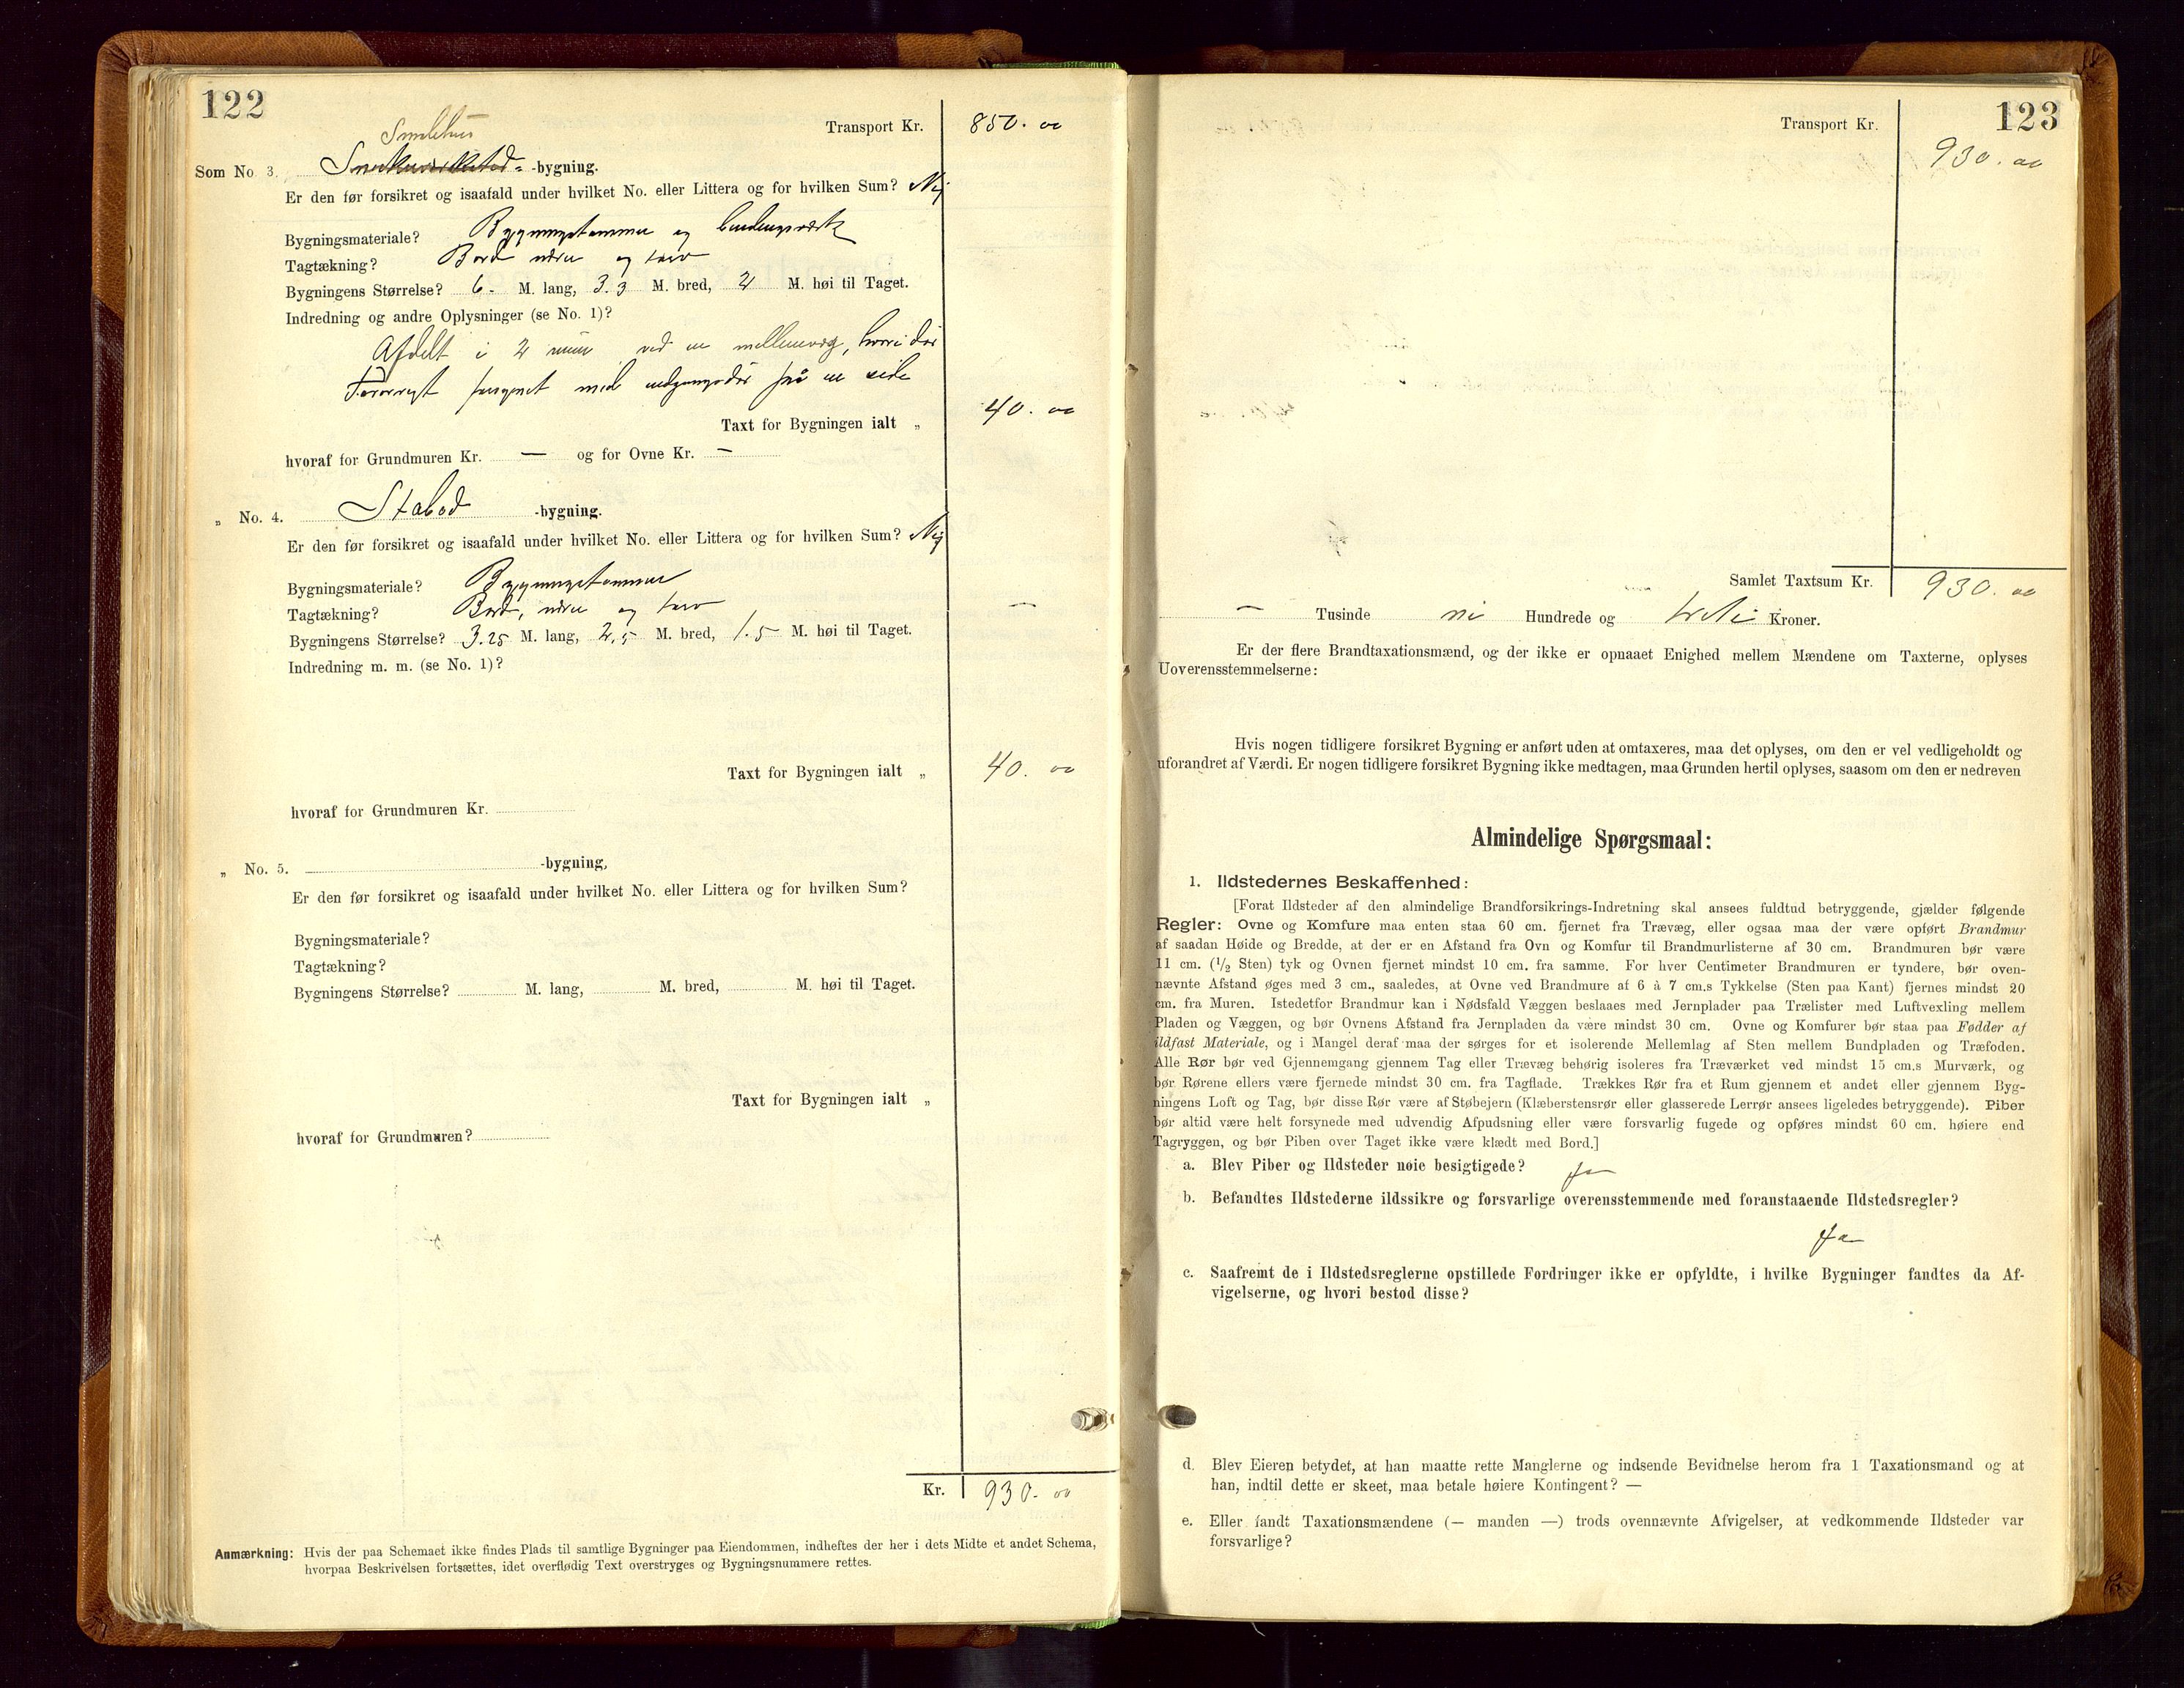 122
Transport Kr. 850. 00
Smalehus
Som No 3. -bygning.
Er den før forsikret og isaafald under hvilket No. eller Littera og for hvilken Sum? Nej
Bygningsmateriale? Bygningstømmer og bindingsværk
Tagtækning? Bord næver og torv
Bygningens Størrelse? 6.- M. lang, 3.3 M. bred, 2 M. høi til Taget.
Indredning og andre Oplysninger (se No. 1)?
Afdelt i 2 rum ved en mellemvæg, hvori dør
forsynet med udgangsdør på en side
Taxt for Bygningen ialt „ 40. 00
hvoraf for Grundmuren Kr. — og for Ovne Kr. —
„ No. 4. Stabod -bygning.
Er den før forsikret og isaafald under hvilket No. eller Littera og for hvilken Sum? Nej
Bygningsmateriale? Bygningstømmer
Tagtækning? Bord, næver og torv —
Bygningens Størrelse? 3.25 M. lang, 2,5 M. bred, 1.5 M. høi til Taget.
Indredning m. m. (se No. 1)?
Taxt for Bygningen ialt „ 40. 00
hvoraf for Grundmuren Kr.
„ No. 5. -bygning,
Er den før forsikret og isaafald under hvilket No. eller Littera og for hvilken Sum?
Bygningsmateriale?
Tagtækning?
Bygningens Størrelse? M. lang, M. bred, M. høi til Taget.
Taxt for Bygningen ialt „
hvoraf for Grundmuren?
Kr. 930. 00
Anmærkning: Hvis der paa Schemaet ikke findes Plads til samtlige Bygninger paa Eiendommen, indheftes der her i dets Midte et andet Schema,
hvorpaa Beskrivelsen fortsættes, idet overflødig Text overstryges og Bygningsnummere rettes.
123
Transport Kr. 930. 00
Samlet Taxtsum Kr. 930. 00
— Tusinde ni Hundrede og treti Kroner.
Er der flere Brandtaxationsmænd, og der ikke er opnaaet Enighed mellem Mændene om Taxterne, oplyses
Uoverensstemmelserne:
Hvis nogen tidligere forsikret Bygning er anført uden at omtaxeres, maa det oplyses, om den er vel vedligeholdt og
uforandret af Værdi. Er nogen tidligere forsikret Bygning ikke medtagen, maa Grunden hertil oplyses, saasom om den er nedreven
Almindelige Spørgsmaal:
1. Ildstedernes Beskaffenhed:
[Forat Ildsteder af den almindelige Brandforsikrings-Indretning skal ansees fuldtud betryggende, gjælder følgende
Regler: Ovne og Komfure maa enten staa 60 cm. fjernet fra Trævæg, eller ogsaa maa der være opført Brandmur
af saadan Høide og Bredde, at der er en Afstand fra Ovn og Komfur til Brandmurlisterne af 30 cm. Brandmuren bør være
11 cm. (1/2 Sten) tyk og Ovnen fjernet mindst 10 cm. fra samme. For hver Centimeter Brandmuren er tyndere, bør oven-
nævnte Afstand øges med 3 cm., saaledes, at Ovne ved Brandmure af 6 à 7 cm.s Tykkelse (Sten paa Kant) fjernes mindst 20
cm. fra Muren. Istedetfor Brandmur kan i Nødsfald Væggen beslaaes med Jernplader paa Trælister med Luftvexling mellem
Pladen og Væggen, og bør Ovnens Afstand fra Jernpladen da være mindst 30 cm. Ovne og Komfurer bør staa paa Fødder af
ildfast Materiale, og i Mangel deraf maa der sørges for et isolerende Mellemlag af Sten mellem Bundpladen og Træfoden.
Alle Rør bør ved Gjennemgang gjennem Tag eller Trævæg behørig isoleres fra Træværket ved mindst 15 cm.s Murværk, og
bør Rørene ellers være fjernede mindst 30 cm. fra Tagflade. Trækkes Rør fra et Rum gjennem et andet eller gjennem Byg-
ningens Loft og Tag, bør disse Rør være af Støbejern (Klæberstensrør eller glasserede Lerrør ansees ligeledes betryggende). Piber
bør altid være helt forsynede med udvendig Afpudsning eller være forsvarlig fugede og opføres mindst 60 cm. høiere end
Tagryggen, og bør Piben over Taget ikke være klædt med Bord.]
a. Blev Piber og Ildsteder nøie besigtigede? Ja
b. Befandtes Ildstederne ildssikre og forsvarlige overensstemmende med foranstaaende Ildstedsregler?
Ja
c. Saafremt de i Ildstedsreglerne opstillede Fordringer ikke er opfyldte, i hvilke Bygninger fandtes da Af-
vigelserne, og hvori bestod disse?
d. Blev Eieren betydet, at han maatte rette Manglerne og indsende Bevidnelse herom fra 1 Taxationsmand og at
han, indtil dette er skeet, maa betale høiere Kontingent? —
e. Eller fandt Taxationsmændene (— manden —) trods ovennævnte Afvigelser, at vedkommende Ildsteder var
forsvarlige?